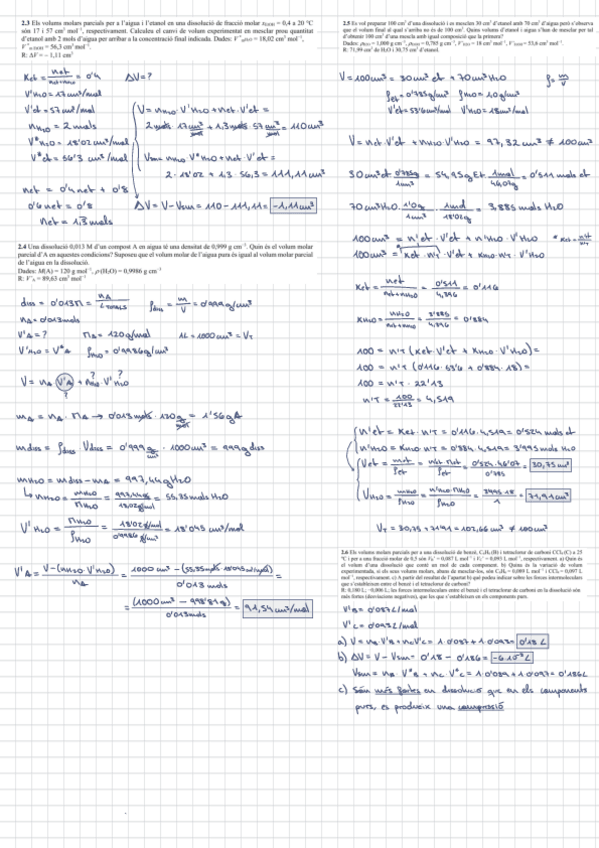 2.3 Els volums molars parcials per a l'aigua i l'etanol en una dissolució de fracció molar xEtOH = 0,4 a 20 ºC
són 17 i 57 cm³ mol⁻¹, respectivament. Calculeu el canvi de volum experimentat en mesclar prou quantitat
d'etanol amb 2 mols d'aigua per arribar a la concentració final indicada. Dades: V*m,H2O = 18,02 cm³ mol⁻¹,
V*m,EtOH = 56,3 cm³ mol⁻¹.
R: ΔV = – 1,11 cm³
Xet = net / (net + nH2O) = 0'4 ΔV = ?
V'H2O = 17 cm³/mol
V'et = 57 cm³/mol
nH2O = 2 mols
V*H2O = 18'02 cm³/mol
V*et = 56'3 cm³/mol
net = 0'4 net + 0'8
0'6 net = 0'8
net = 1,3 mols
V = nH2O · V'H2O + net · V'et =
2 mols · 17 cm³/mol + 1,3 mols · 57 cm³/mol = 110 cm³
Vsm = nH2O · V*H2O + net · V*et =
2 · 18'02 + 1,3 · 56,3 = 111,11 cm³
ΔV = V - Vsm = 110 - 111,11 = -1,11 cm³
2.4 Una dissolució 0,013 M d'un compost A en aigua té una densitat de 0,999 g cm⁻³. Quin és el volum molar
parcial d'A en aquestes condicions? Suposeu que el volum molar de l'aigua pura és igual al volum molar parcial
de l'aigua en la dissolució.
Dades: M(A) = 120 g mol⁻¹, ρ (H2O) = 0,9986 g cm⁻³
R: V'A = 89,63 cm³ mol⁻¹
diss = 0'013M = nA / L ρdiss = m/V = 0'999 g/cm³
nA = 0'013 mols
V'A = ? MA = 120 g/mol 1L = 1000 cm³ = VT
V'H2O = V* ρH2O = 0'9986 g/cm³
V = nA · V'A + nH2O · V'H2O
? ? ?
mA = nA · MA → 0'013 mols · 120 g/mol = 1'56 g A
mdiss = ρdiss · Vdiss = 0'999 g/cm³ · 1000 cm³ = 999 g diss
mH2O = mdiss - mA = 997,44 g H2O
↳ nH2O = mH2O / MH2O = 997,44 g / 18'02 g/mol = 55,35 mols H2O
V'H2O = MH2O / ρH2O = 18'02 g/mol / 0'9986 g/cm³ = 18'045 cm³/mol
V'A = (V - (nH2O · V'H2O)) / nA = (1000 cm³ - (55,35 mols · 18'045 cm³/mol)) / 0'013 mols =
= (1000 cm³ - 998'81) / 0'013 mols = 91,54 cm³/mol
2.5 Es vol preparar 100 cm³ d'una dissolució i es mesclen 30 cm³ d'etanol amb 70 cm³ d'aigua però s'observa
que el volum final al que s'arriba no és de 100 cm³. Quins volums d'etanol i aigua s'han de mesclar per tal
d'obtenir 100 cm³ d'una mescla amb igual composició que la primera?
R: 71,99 cm³ de H2O i 30,75 cm³ d'etanol.
V = 100 cm³ = 30 cm³ et + 70 cm³ H2O ρ = m/V
ρet = 0'785 g/cm³ ρH2O = 1,0 g/cm³
V'et = 53'6 cm³/mol V'H2O = 18 cm³/mol
V = net · V'et + nH2O · V'H2O = 97,32 cm³ ≠ 100 cm³
30 cm³ et · 0'785 g / 1 cm³ · 1 mol / 46,07 g = 0'511 mols et
70 cm³ H2O · 1'0 g / 1 cm³ · 1 mol / 18'02 g = 3,885 mols H2O
100 cm³ = n'et · V'et + n'H2O · V'H2O
100 cm³ = Xet · n'T · V'et + XH2O · n'T · V'H2O
Xet = net / (net + nH2O) = 0'511 / 4,396 = 0'116
XH2O = nH2O / (net + nH2O) = 3'885 / 4,396 = 0'884
100 = n'T (Xet · V'et + XH2O · V'H2O) =
100 = n'T (0'116 · 53'6 + 0'884 · 18) =
100 = n'T · 22'13
n'T = 100 / 22'13 = 4,519
n'et = Xet · n'T = 0'116 · 4,519 = 0'524 mols et
n'H2O = XH2O · n'T = 0'884 · 4,519 = 3'995 mols H2O
Vet = met / ρet = net · Met / ρet = 0'524 · 46'07 / 0'785 = 30,75 cm³
VH2O = mH2O / ρH2O = nH2O · MH2O / ρH2O = 3'995 · 18 / 1 = 71,91 cm³
VT = 30,75 + 71'91 = 102,66 cm³ ≠ 100 cm³
2.6 Els volums molars parcials per a una dissolució de benzè, C6H6 (B) i tetraclorur de carboni CCl4 (C) a 25
ºC i per a una fracció molar de 0,5 són VB' = 0,087 L mol⁻¹ i VC' = 0,093 L mol⁻¹, respectivament. a) Quin és
el volum d'una dissolució que conté un mol de cada component. b) Quina és la variació de volum
experimentada, si els seus volums molars, abans de mesclar-los, són C6H6 = 0,089 L mol⁻¹ i CCl4 = 0,097 L
mol⁻¹, respectivament. c) A partir del resultat de l'apartat b) què podeu indicar sobre les forces intermoleculars
que s'estableixen entre el benzè i el tetraclorur de carboni?
R: 0,180 L; -0,006 L; les forces intermoleculars entre el benzè i el tetraclorur de carboni en la dissolució són
més fortes (desviacions negatives), que les que s'estableixen en els components purs.
V'B = 0'087 L/mol
V'C = 0'093 L/mol
a) V = nB · V'B + nC · V'C = 1 · 0'087 + 1 · 0'093 = 0'18 L
b) ΔV = V - Vsm = 0'18 - 0'186 = -6·10⁻³ L
Vsm = nB · V*B + nC · V*C = 1 · 0'089 + 1 · 0'097 = 0'186 L
c) Són més fortes en dissolució que en els components
purs, es produeix una compressió